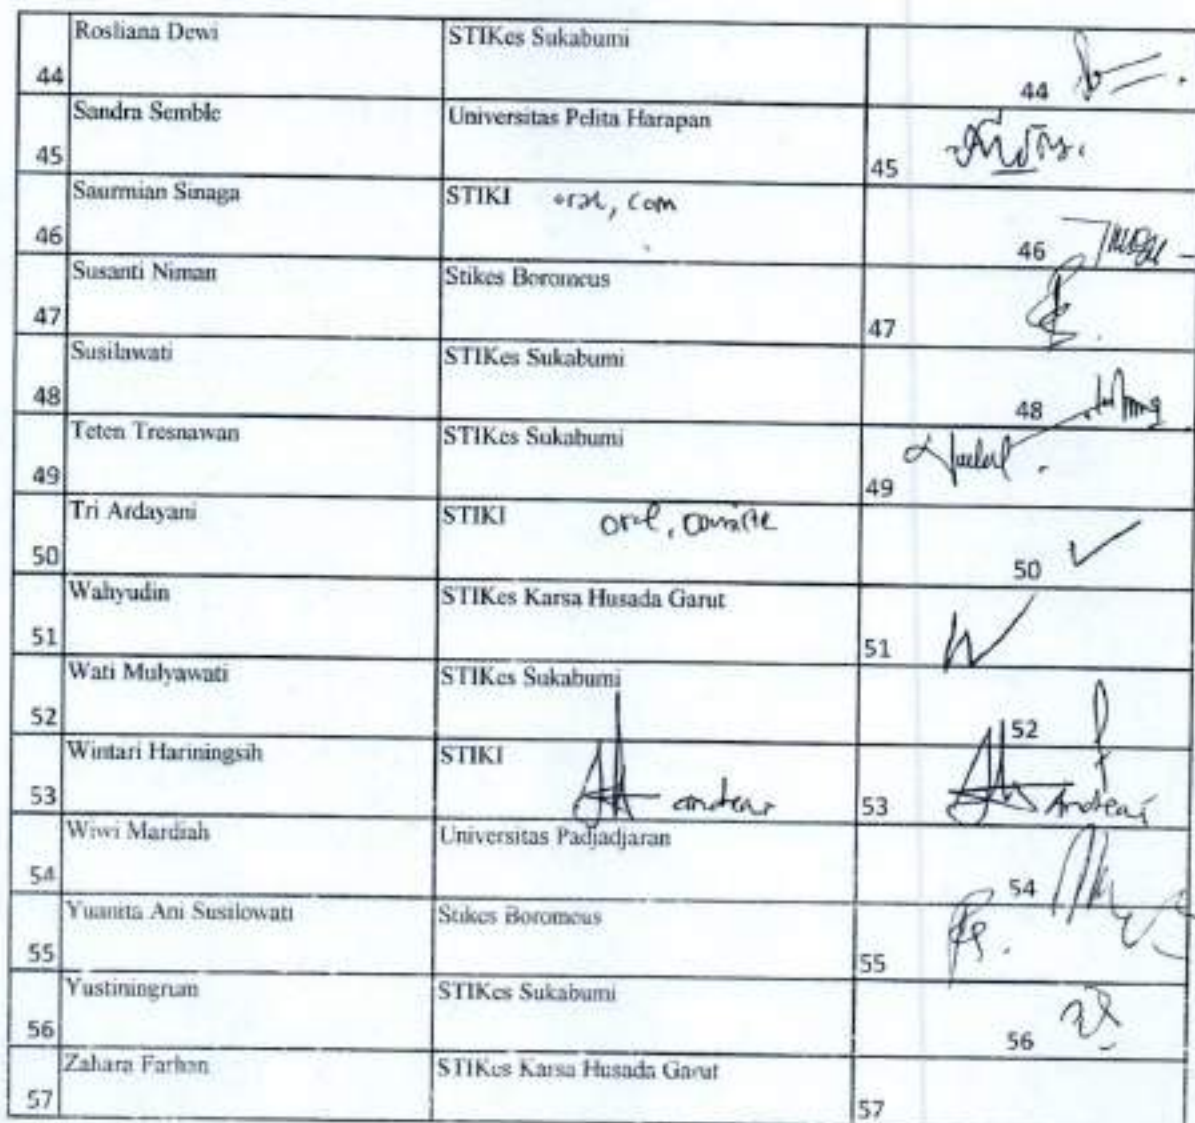 Rosliana Dewi STIKes Sukabumi
44 44
Sandra Semble Universitas Pelita Harapan
45 45
Saurmian Sinaga STIKI oral, com
46 46
Susanti Niman Stikes Boromeus
47 47
Susilawati STIKes Sukabumi
48 48
Teten Tresnawan STIKes Sukabumi
49 49
Tri Ardayani STIKI oral,
50 50
Wahyudin STIKes Karsa Husada Garut
51 51
Wati Mulyawati STIKes Sukabumi
52 52
Wintari Hariningsih STIKI
53 andreas 53 Andreas
Wiwi Mardiah Universitas Padjadjaran
54 54
Yuanita Ani Susilowati Stikes Boromeus
55 55
Yustiningrum STIKes Sukabumi
56 56
Zahara Farhan STIKes Karsa Husada Garut
57 57